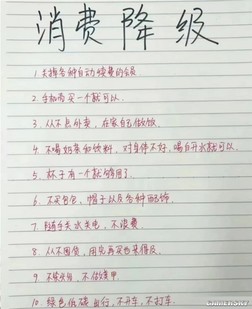 消费降级
1. 关掉各种自动续费的会员
2. 手机需买一个就可以.
3. 从不点外卖, 在家自己做饭
4. 不喝奶茶和饮料, 对身体不好, 喝白开水就可以.
5. 杯子有一个就够用了
6. 不买包包, 帽子以及各种配饰
7. 随手关水关电, 不浪费
8. 从不囤货, 用完再买也来得及.
9. 不烫头, 不做美甲
10. 绿色低碳出行, 不开车, 不打车.
GAMERSKY